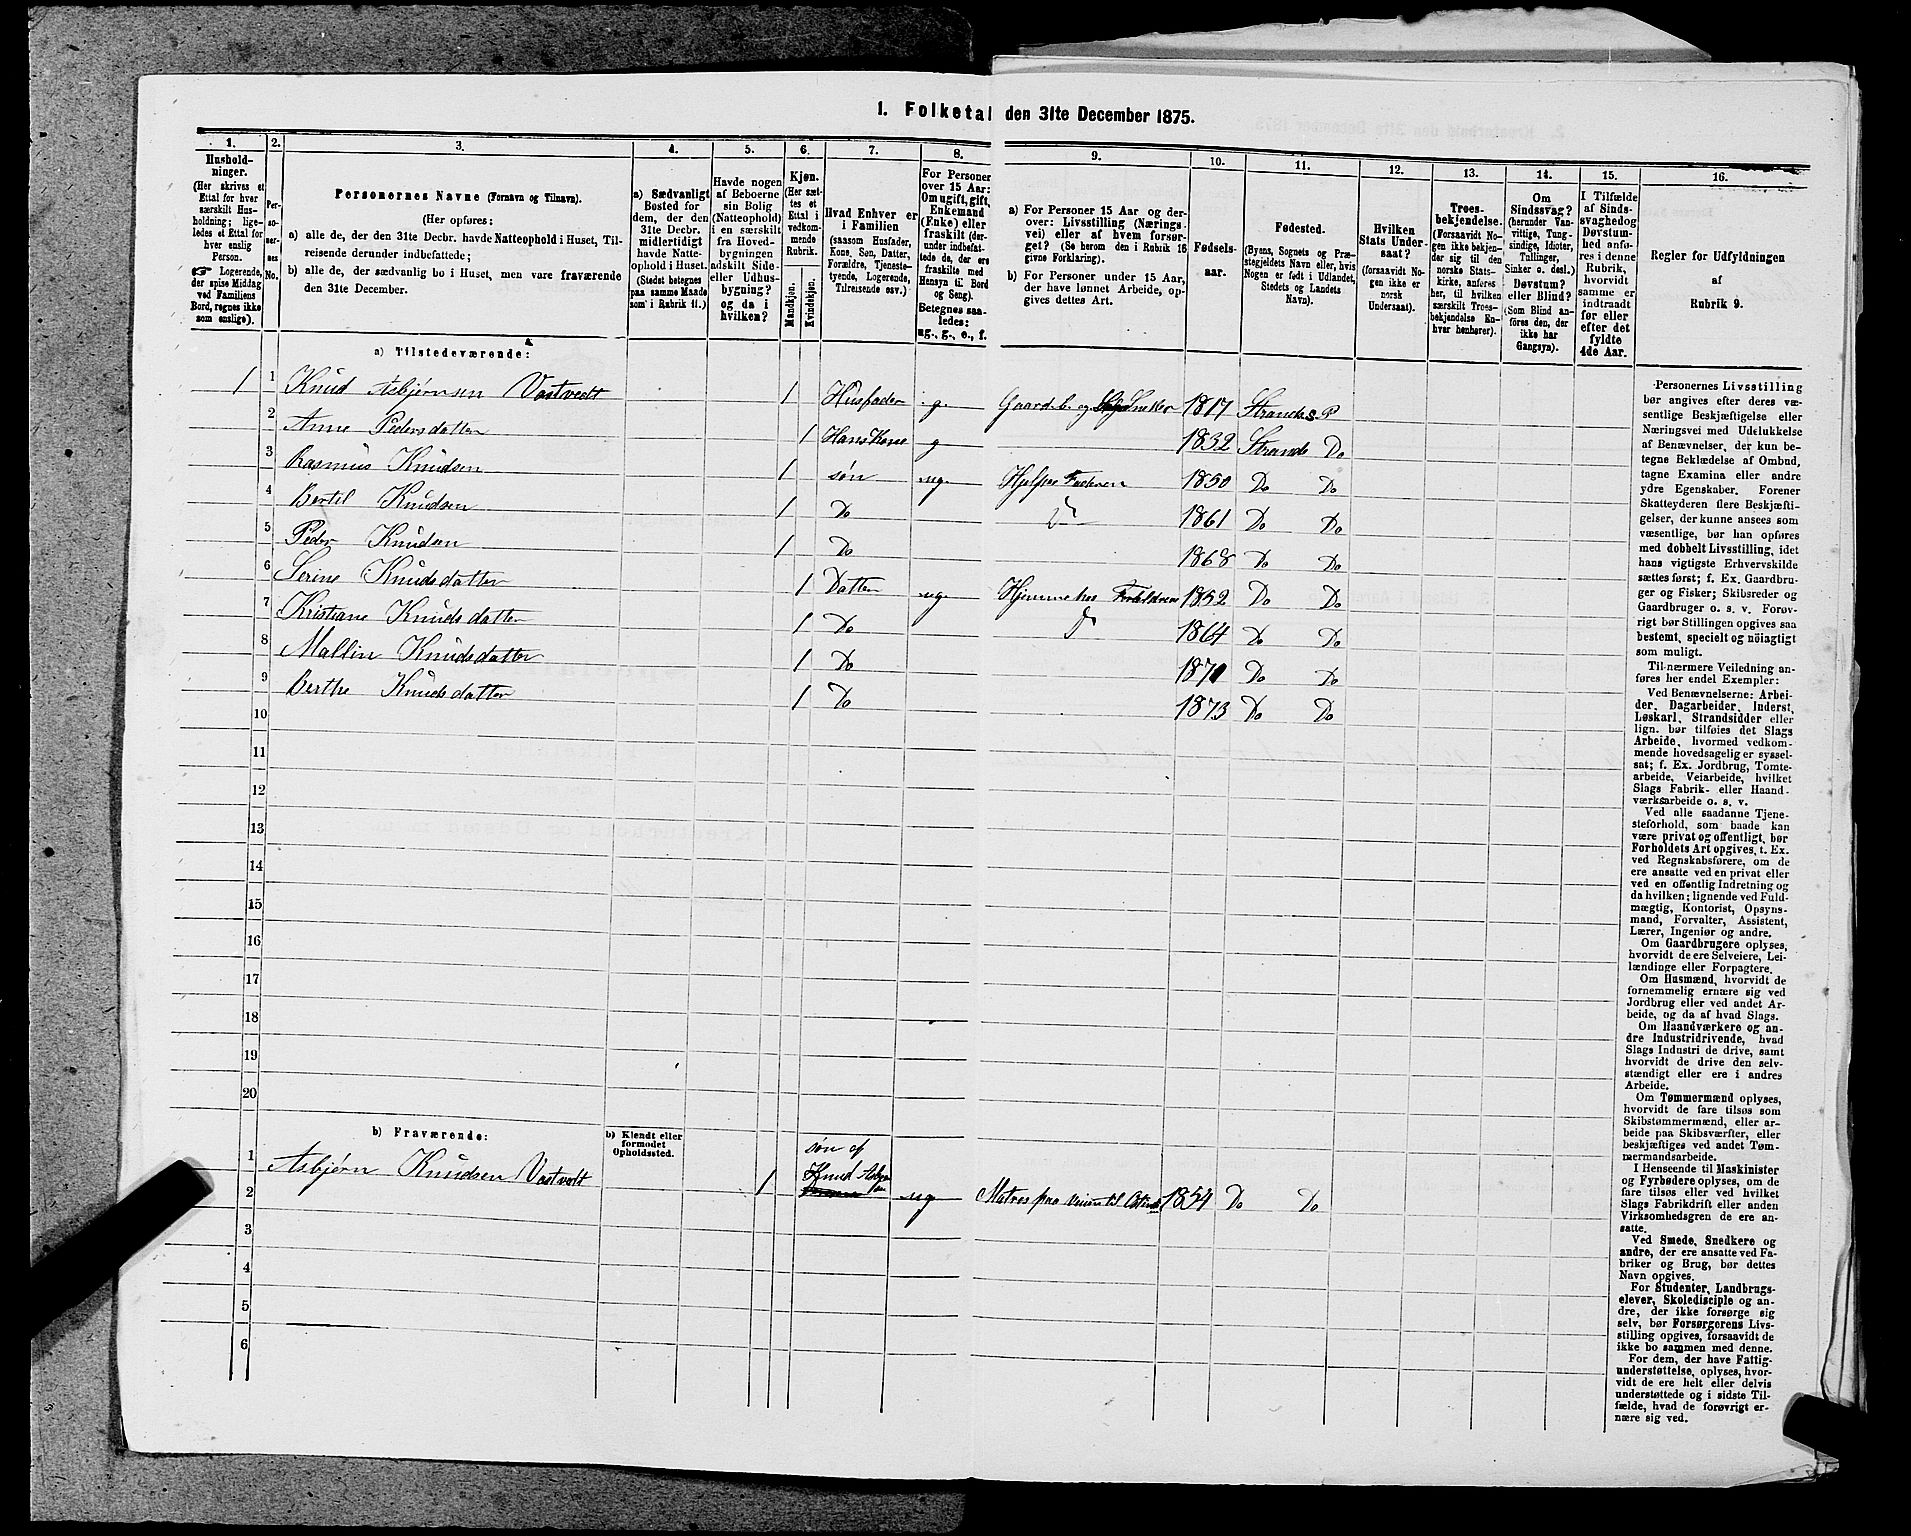 1. Folketal den 31te December 1875.
1. 2. 3. 4. 5. 6. 7. 8. 9. 10. 11. 12. 13. 14. 15. 16.
Hushold-
ninger.
(Her skrives et
Ettal for hver
særskilt Hus-
holdning; lige-
ledes et Ettal for
hver enslig
Person.
☞ Logerende,
der spise Middag
ved Familiens
Bord, regnes ikke
som enslige).
Per-
so-
ner-
nes
No.
Personernes Navne (Fornavn og Tilnavn).
(Her opføres:
a) alle de, der den 31te Decbr. havde Natteophold i Huset, Til-
reisende derunder indbefattede;
b) alle de, der sædvanlig bo i Huset, men vare fraværende
den 31te December.
a) Sædvanligt
Bosted for
dem, der den
31te Decbr.
midlertidigt
havde Natte-
ophold i Huset.
(Stedet betegnes
paa samme Maade
som i Rubrik 11.)
Havde nogen
af Beboerne
sin Bolig
(Natteophold)
i en særskilt
fra Hoved-
bygningen
adskilt Side-
eller Udhus-
bygning?
og da i
hvilken?
Kjøn.
(Her sæt-
tes et
Ettal i
vedkom-
mende
Rubrik.
Mandkjøn.
Kvindekjøn.
Hvad Enhver er
i Familien
(saasom Husfader,
Kone, Søn, Datter,
Forældre, Tjeneste-
tyende, Logerende,
Tilreisende osv.)
For Personer
over 15 Aar:
Om ugift, gift,
Enkemand
(Enke) eller
fraskilt (der-
under indbefat-
tede de, der ere
fraskilte med
Hensyn til Bord
og Seng).
Betegnes saa-
ledes:
ug., g., e., f.
a) For Personer 15 Aar og der-
over: Livsstilling (Nærings-
vei) eller af hvem forsør-
get? (Se herom den i Rubrik 16
givne Forklaring).
b) For Personer under 15 Aar,
der have lønnet Arbeide, op-
gives dettes Art.
Fødsels-
aar.
Fødested.
(Byens, Sognets og Præ-
stegjeldets Navn eller, hvis
Nogen er født i Udlandet,
Stedets og Landets
Navn).
Hvilken
Stats Under-
saat?
(forsaavidt No-
gen ikke er
norsk
Undersaat).
Troes-
bekjendelse.
(Forsaavidt No-
gen ikke bekjen-
der sig til den
norske Stats-
kirke, anføres
her, til hvilken
særskilt Troes-
bekjendelse En-
hver henhører).
Om
Sindssvag?
(herunder Van-
vittige, Tung-
sindige, Idioter,
Tullinger,
Sinker o. desl.)
Døvstum?
eller Blind?
(Som Blind an-
føres den, der
ikke har
Gangsyn).
I Tilfælde
af Sinds-
svaghed og
Døvstum-
hed anfø-
res i denne
Rubrik,
hvorvidt
samme er
indtraadt
før eller
efter det
fyldte
4de Aar.
Regler for Udfyldningen
af
Rubrik 9.
a) Tilstedeværende:
1 1 Knud Asbjørnsen Vastvedt 1 Husfader g. Gaardb. og Snekker 1817 Strands P
2 Anne Pedersdatter 1 Hans Kone g 1832 Strands Do
3 Rasmus Knudsen 1 søn ug. Hjelper Faderen 1850 Do Do
4 Bertil Knudsen 1 Do 1861 Do Do
5 Peder Knudsen 1 Do 1868 Do Do
6 Serine Knudsdatter 1 Datter ug Hjemme hos Forældrene 1852 Do Do
7 Kristiane Knudsdatter 1 Do 1864 Do Do
8 Mallin Knudsdatter 1 Do 1871 Do Do
9 Berthe Knudsdatter 1 Do 1873 Do Do
10
11
12
13
14
15
16
17
18
19
20
b) Fraværende:
b) Kjendt eller
formodet
Opholdssted.
søn af
1 Asbjørn Knudsen Vastvedt 1 Knud Asbjørn
2 ug Matros paa 1854 Do Do
3
4
5
6
Personernes Livsstilling
bør angives efter deres væ-
sentlige Beskjæftigelse eller
Næringsvei med Udelukkelse
af Benævnelser, der kun be-
tegne Beklædelse af Ombud,
tagne Examina eller andre
ydre Egenskaber. Forener
Skatteyderen flere Beskjæfti-
gelser, der kunne ansees som
væsentlige, bør han opføres
med dobbelt Livsstilling, idet
hans vigtigste Erhvervskilde
sættes først; f. Ex. Gaardbru-
ger og Fisker; Skibsreder og
Gaardbruger o. s. v. Forøv-
rigt bør Stillingen opgives saa
bestemt, specielt og nöiagtigt
som muligt.
Til nærmere Veiledning an-
føres her endel Exempler:
Ved Benævnelserne: Arbei-
der, Dagarbeider, Inderst,
Løskarl, Strandsidder eller
lign. bør tilføies det Slags
Arbeide, hvormed vedkom-
mende hovedsagelig er syssel-
sat; f. Ex. Jordbrug, Tomte-
arbeide, Veiarbeide, hvilket
Slags Fabrik- eller Haand-
værksarbeide o. s. v.
Ved alle saadanne Tjene-
steforhold, som baade kan
være privat og offentligt, bør
Forholdets Art opgives, t. Ex.
ved Regnskabsførere, om de
ere ansatte ved en privat eller
ved en offentlig Indretning og
da hvilken; lignende ved Fuld-
mægtig, Kontorist, Opsyns-
mand, Forvalter, Assistent,
Lærer, Ingeniør og andre.
Om Gaardbrugere oplyses,
hvorvidt de ere Selveiere, Lei-
lændinge eller Forpagtere.
Om Husmænd, hvorvidt de
fornemmelig ernære sig ved
Jordbrug eller ved andet Ar-
beide, og da af hvad Slags.
Om Haandværkere og an-
dre Industridrivende, hvad
Slags Industri de drive, samt
hvorvidt de drive den selv-
stændigt eller ere i andres
Arbeide.
Om Tømmermænd oplyses,
hvorvidt de fare tilsøs som
Skibstømmermænd, eller ar-
beide paa Skibsværfter, eller
beskjæftiges ved andet Tøm-
mermandsarbeide.
I Henseende til Maskinister
og Fyrbødere oplyses, om de
fare tilsøs eller ved hvilket
Slags Fabrikdrift eller anden
Virksomhedsgren de ere an-
satte.
Ved Smede, Snedkere og
andre, der ere ansatte ved Fa-
briker og Brug, bør dettes
Navn opgives.
For Studenter, Landbrugs-
elever, Skoledisciple og an-
dre, der ikke forsørge sig
selv, bør Forsørgerens Livs-
stilling opgives, forsaavidt de
ikke bo sammen med denne.
For dem, der have Fattig-
understøttelse, oplyses, hvor-
vidt de ere helt eller delvis
understøttede og i sidste Til-
fælde, hvad de forøvrigt er-
nære sig ved.